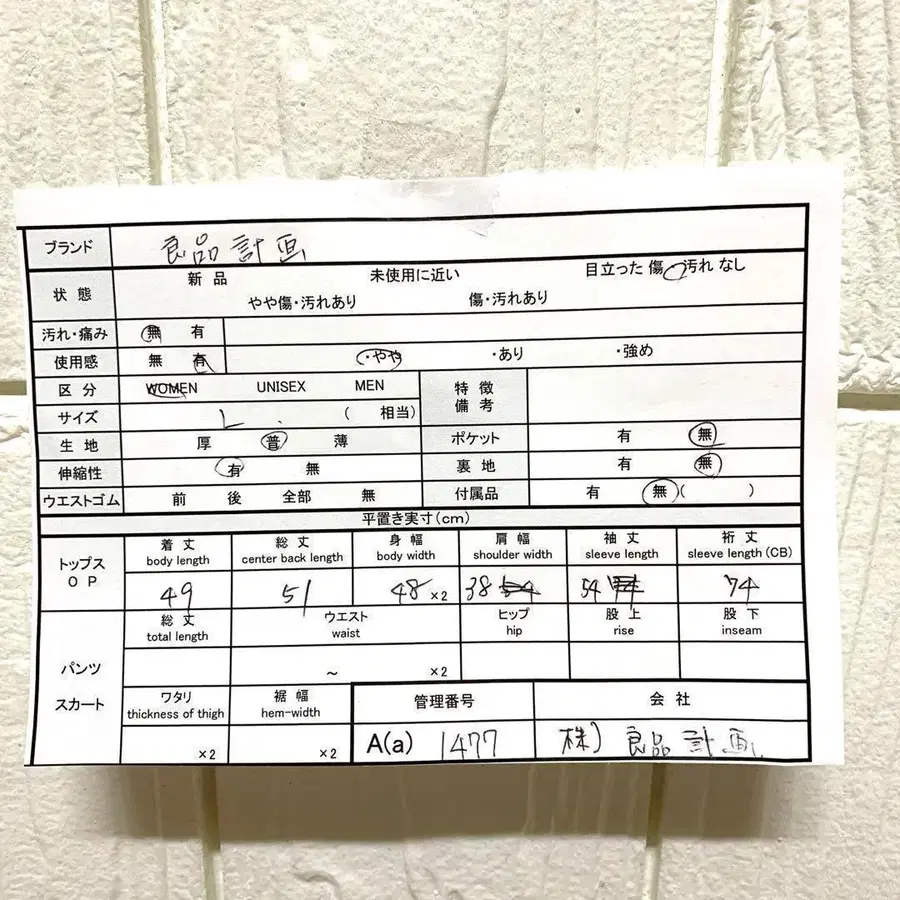 ブランド 良品計画
新品 未使用に近い 目立った傷・汚れなし
状態
やや傷・汚れあり 傷・汚れあり
汚れ・痛み 無 有
使用感 無 有 ・やや ・あり ・強め
区分 WOMEN UNISEX MEN 特徴
備考
サイズ L ( 相当)
生地 厚 普 薄 ポケット 有 無
伸縮性 有 無 裏地 有 無
ウエストゴム 前 後 全部 無 付属品 有 無( )
平置き実寸(cm)
トップス
OP
着丈 総丈 身幅 肩幅 袖丈 裄丈
body length center back length body width shoulder width sleeve length sleeve length (CB)
49 51 48 ×2 38 54 74
総丈 ウエスト ヒップ 股上 股下
total length waist hip rise inseam
パンツ
~ ×2
スカート
ワタリ 裾幅 管理番号 会社
thickness of thigh hem-width
×2 ×2 A(a) 1477 株)良品計画